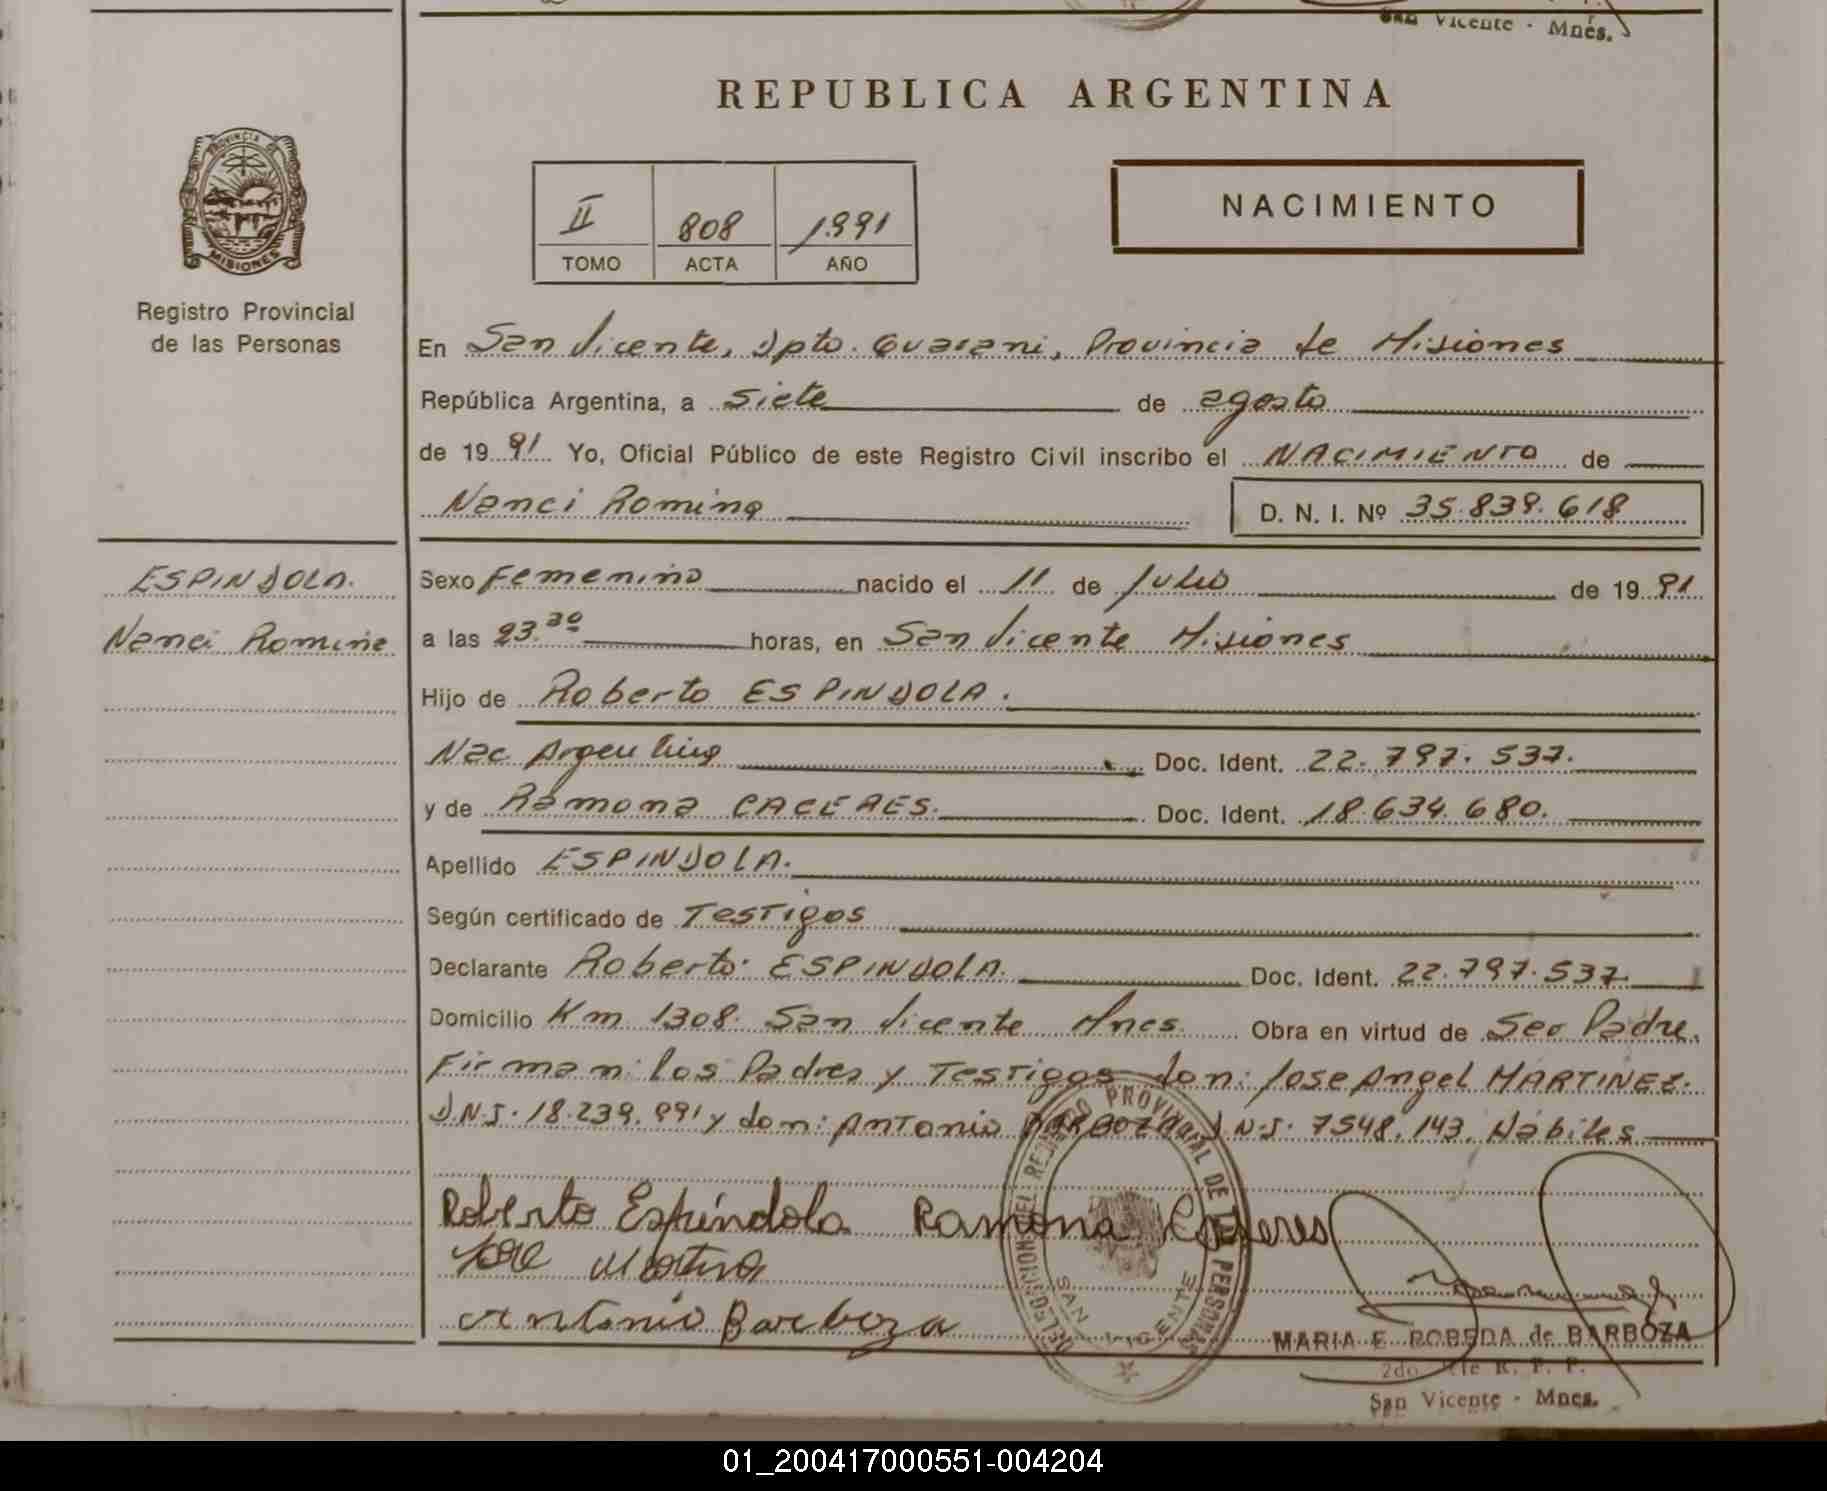 San Vicente - Mnes.
REPUBLICA ARGENTINA
PROVINCIA DE
MISIONES
Registro Provincial
de las Personas
II 808 1991
TOMO ACTA AÑO
NACIMIENTO
En San Vicente, Dpto. Guarani, Provincia de Misiones
República Argentina, a Siete de agosto
de 1991 Yo, Oficial Público de este Registro Civil inscribo el NACIMIENTO de
Nanci Romina D. N. I. Nº 35.839.618
ESPINDOLA.
Nanci Romina
Sexo Femenino nacido el 11 de Julio de 1991
a las 23.30 horas, en San Vicente Misiones
Hijo de Roberto ESPINDOLA.
Nac Argentina Doc. Ident. 22.797.537.
y de Ramona CACERES. Doc. Ident. 18.634.680.
Apellido ESPINDOLA.
Según certificado de Testigos
Declarante Roberto ESPINDOLA. Doc. Ident. 22.797.537.
Domicilio Km 1308. San Vicente Mnes. Obra en virtud de Ser Padre.
Firman: los Padres y Testigos don: Jose Angel MARTINEZ.
D.N.I. 18.239.991 y don: Antonio BARBOZA D.N.I. 7548.143. Habiles
Roberto Espíndola Ramona Caseres
Jose
Antonio Barboza
DELEGACION DEL REGISTRO PROVINCIAL DE LAS PERSONAS
SAN VICENTE
MARIA E. ROBEDA de BARBOZA
2do. R. P. P.
San Vicente - Mnes.
01_200417000551-004204